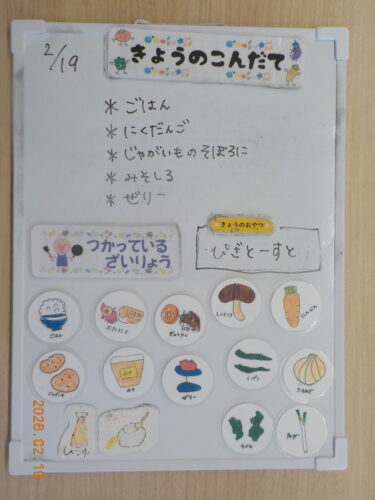 2/19
きょうのこんだて
* ごはん
* にくだんご
* じゃがいものそぼろに
* みそしる
* ゼリー
つかっている
ざいりょう
きょうのおやつ
ぴざとーすと
ごはん
ぶたにく
ぎゅうにく
しいたけ
にんじん
じゃがいも
みそ
みそ
ゼリー
たまねぎ
わかめ
ねぎ
しょうゆ
2026.02.19